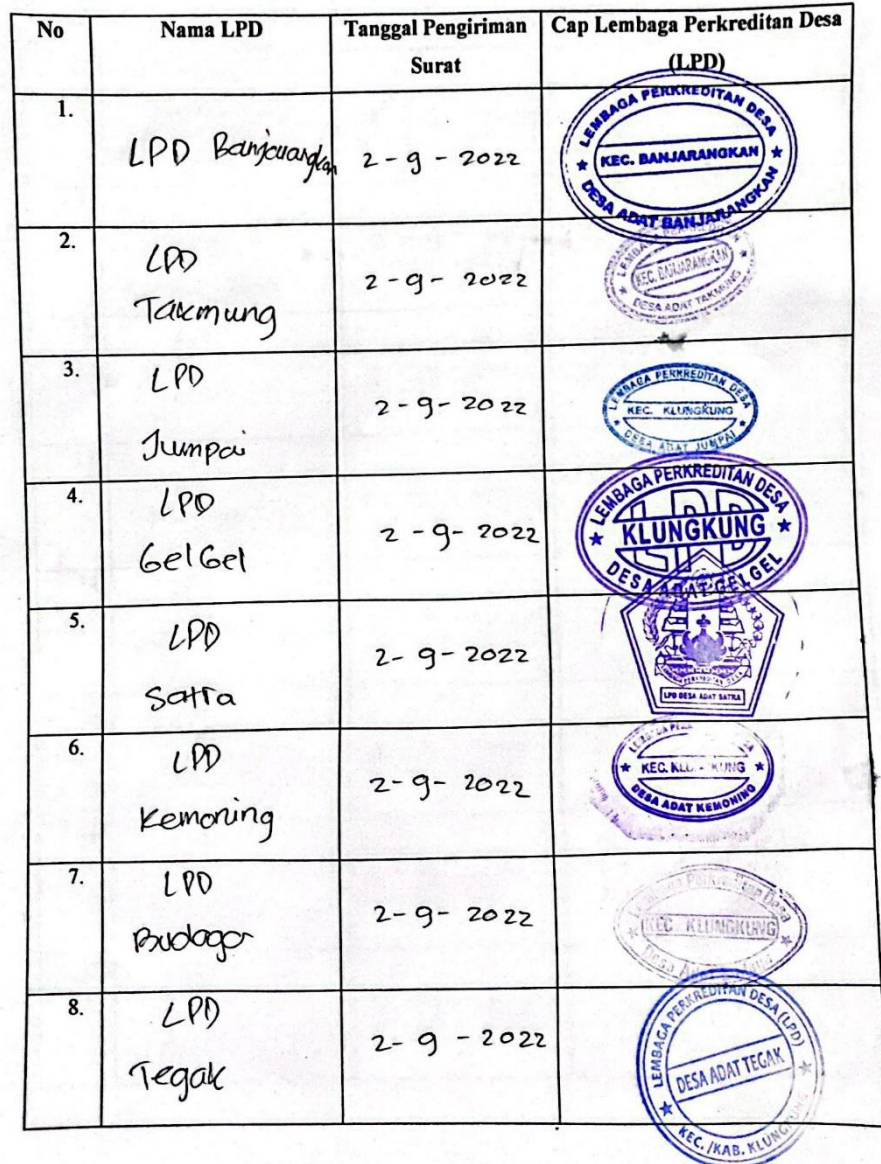 No Nama LPD Tanggal Pengiriman Surat Cap Lembaga Perkreditan Desa (LPD)
1. LPD Banjarangkan 2 - 9 - 2022
LEMBAGA PERKREDITAN DESA
KEC. BANJARANGKAN
DESA ADAT BANJARANGKAN
2. LPD Takmung 2 - 9 - 2022
KEC. BANJARANGKAN
DESA ADAT TAKMUNG
3. LPD Jumpai 2 - 9 - 2022
LEMBAGA PERKREDITAN DESA
KEC. KLUNGKUNG
DESA ADAT JUMPAI
4. LPD GelGel 2 - 9 - 2022
LEMBAGA PERKREDITAN DESA
LPD
KLUNGKUNG
DESA ADAT GELGEL
5. LPD Satra 2 - 9 - 2022
LPD DESA ADAT SATRA
6. LPD Kemoning 2 - 9 - 2022
DESA ADAT KEMONING
7. LPD Budaga 2 - 9 - 2022
Lembaga Perkreditan Desa
KEC. KLUNGKUNG
Desa
8. LPD Tegak 2 - 9 - 2022
LEMBAGA PERKREDITAN DESA (LPD)
DESA ADAT TEGAK
KEC. /KAB. KLUNGKUNG